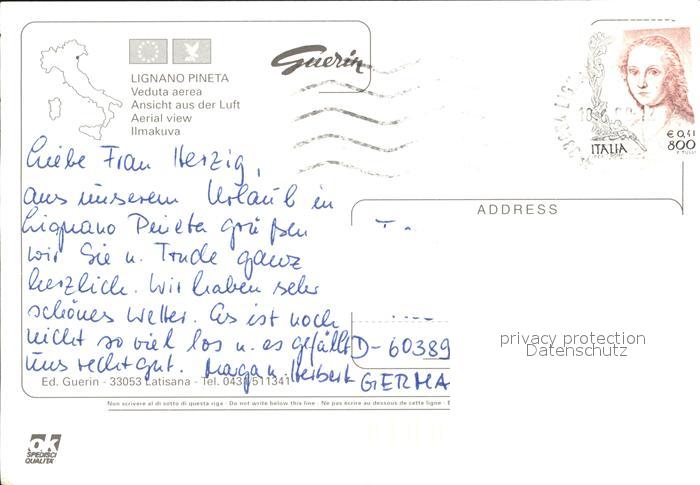 Guerin
LIGNANO PINETA
Veduta aerea
Ansicht aus der Luft
Aerial view
Ilmakuva
€ 0,41
800
ITALIA
ADDRESS
Liebe Frau Herzig,
aus unserem Urlaub in
Lignano Pineta grüßen
wir Sie u. Trude ganz
herzlich. Wir haben sehr
schönes Wetter. Es ist noch
nicht so viel los u. es gefällt
uns recht gut. Marga u. Herbert
D-60389
GERMA
privacy protection
Datenschutz
Ed. Guerin - 33053 Latisana - Tel. 0431/511341
Non scrivere al di sotto di questa riga - Do not write below this line - Ne pas écrire au dessous de cette ligne -
ok
SPEDISCI
QUALITA'